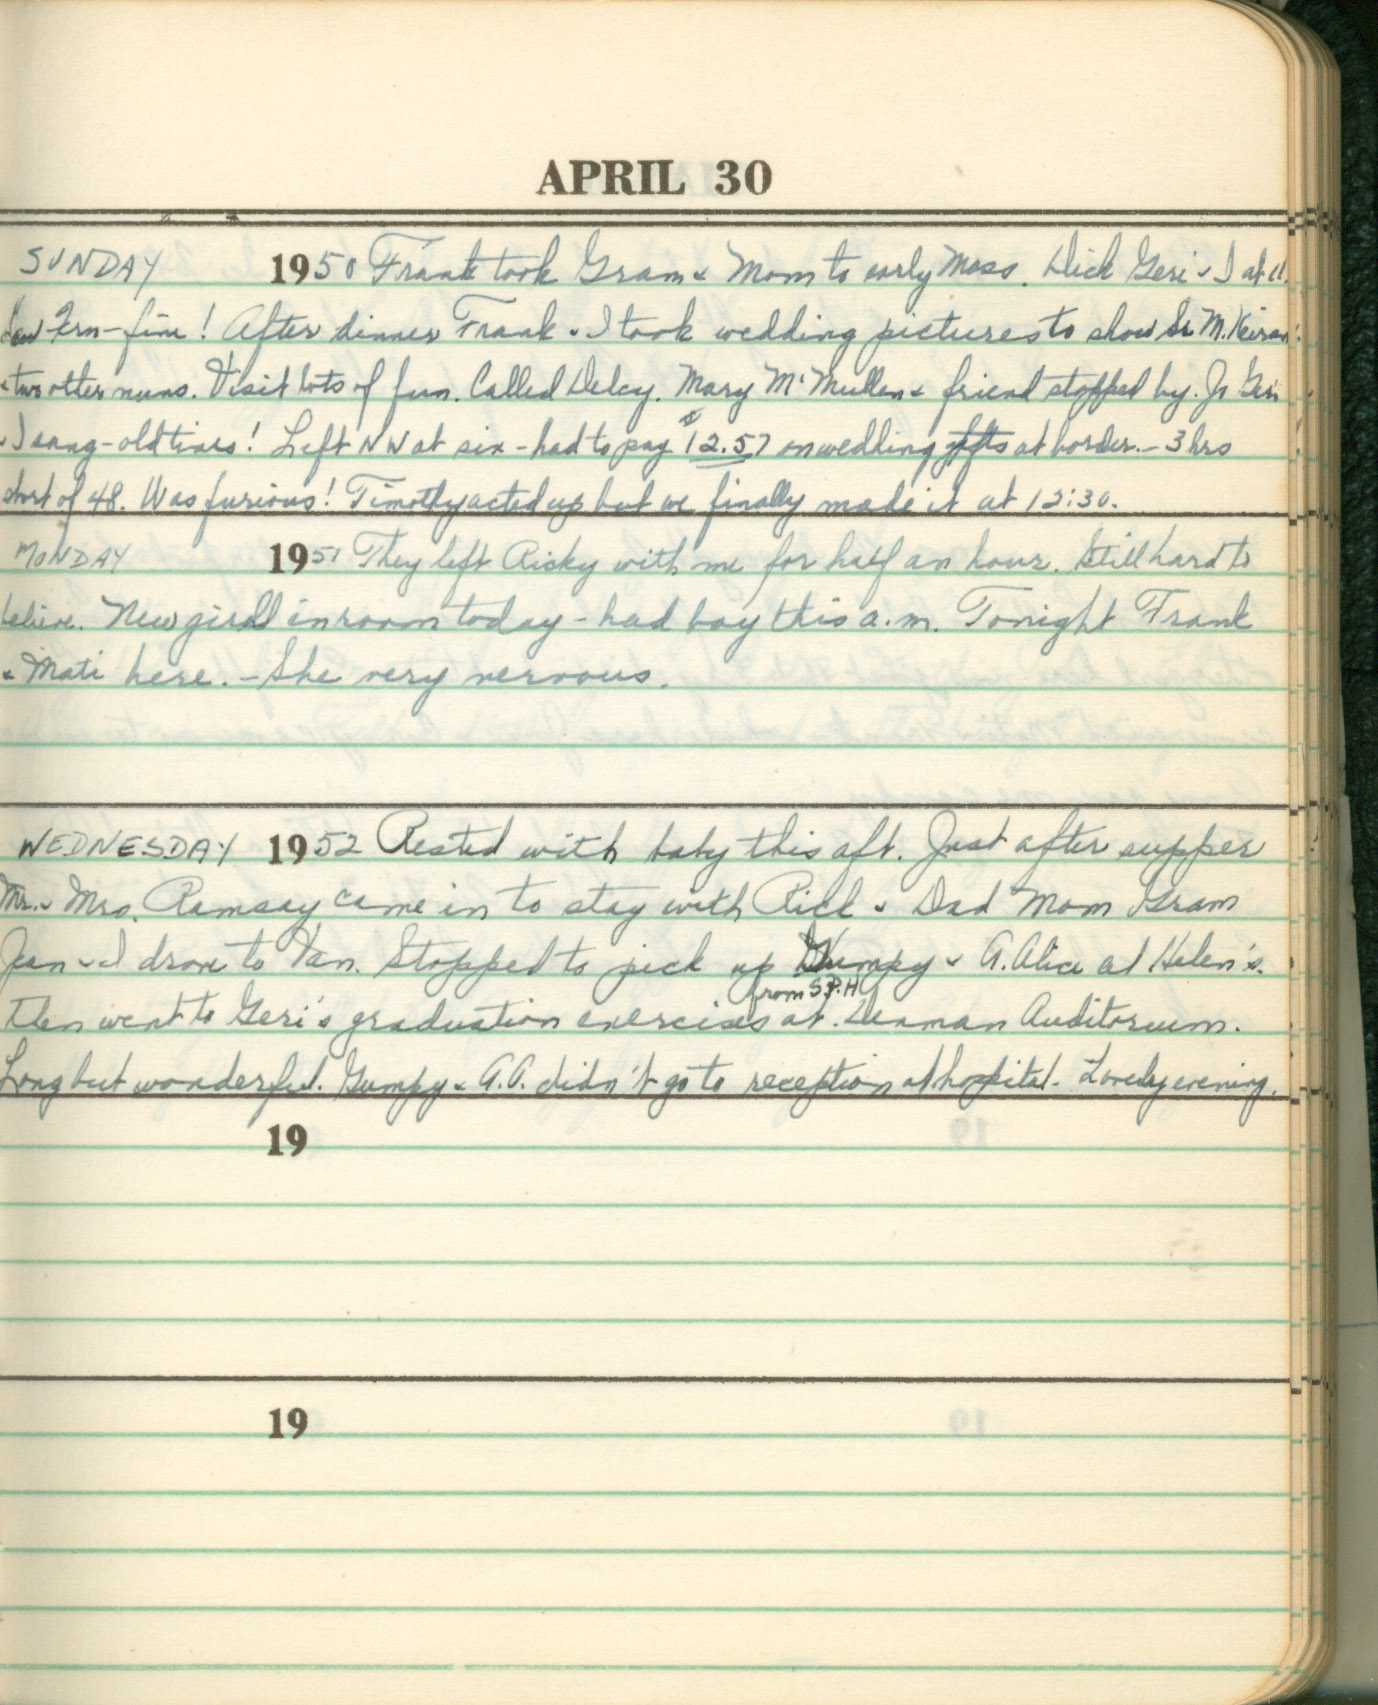 APRIL 30
SUNDAY 1950 Frank took Gram & Mom to early Mass. Dick Geri & I at 11.
Fern - fine! After dinner Frank & I took wedding pictures to show Sr. M. Keiran
& two other nuns. Visit lots of fun. Called Delcy. Mary McMullen & friend stopped by. Jo Geri
& I sang - old times! Left N W at six - had to pay $12.57 on wedding gifts at border. - 3 hrs
short of 48. Was furious! Timothy acted up but we finally made it at 12:30.
MONDAY 1951 They left Ricky with me for half an hour. Still hard to
believe. New girl in room today - had boy this a.m. Tonight Frank
& Mati here. - She very nervous.
WEDNESDAY 1952 Rested with baby this aft. Just after supper
Mr. & Mrs. Ramsay came in to stay with Rick & Dad Mom Gram
Jean & I drove to Van. Stopped to pick up Gumpy & A. Alice at Helen's.
from S.P.H
then went to Geri's graduation exercises at Denman Auditorium.
Long but wonderful. Gumpy & A.A. didn't go to reception at hospital - Lovely evening.
19
19